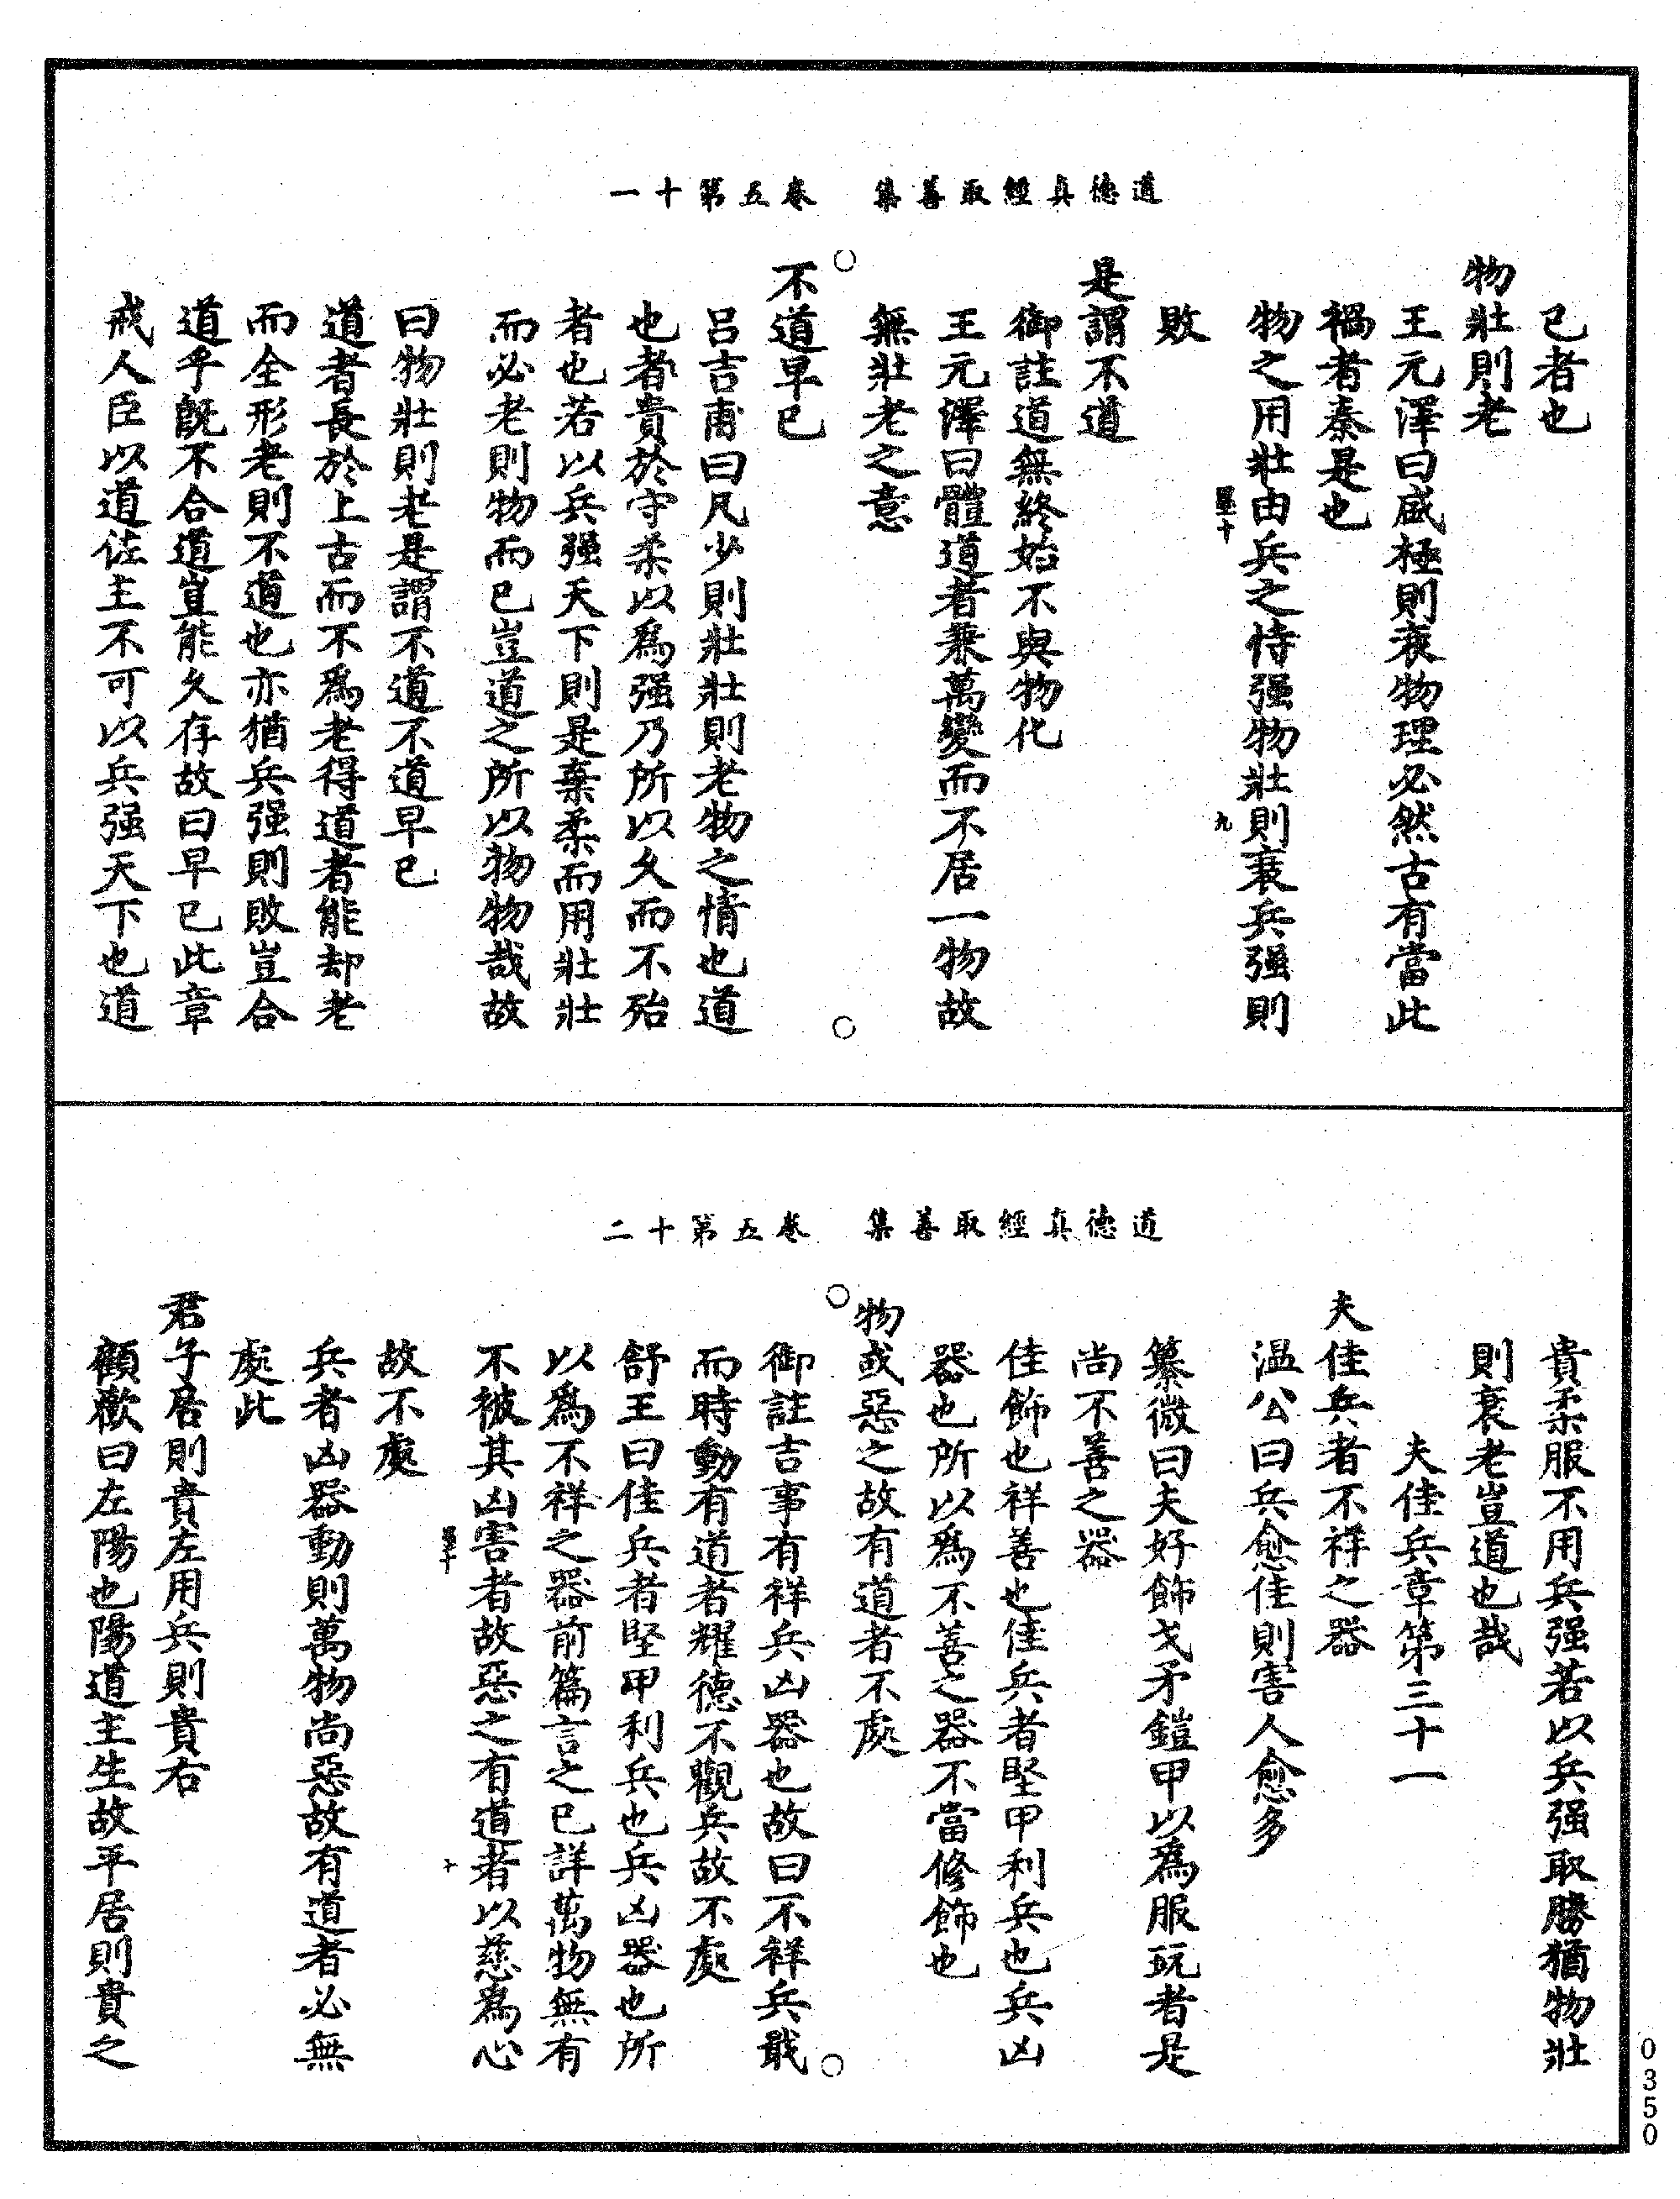 道德真經取善集　卷五第十一
已者也
物壯則老
王元澤曰盛極則衰物理必然古有當此
禍者秦是也
物之用壯由兵之恃强物壯則衰兵强則
敗
是謂不道
御註道無終始不與物化
王元澤曰體道者兼萬變而不居一物故
無壯老之意
不道早已
呂吉甫曰凡少則壯壯則老物之情也道
也者貴於守柔以爲强乃所以久而不殆
者也若以兵强天下則是棄柔而用壯壯
而必老則物而已豈道之所以物物哉故
曰物壯則老是謂不道不道早已
道者長於上古而不爲老得道者能却老
而全形老則不道也亦猶兵强則敗豈合
道乎旣不合道豈能久存故曰早已此章
戒人臣以道佐主不可以兵强天下也道
道德真經取善集　卷五第十二
貴柔服不用兵强若以兵强取勝猶物壯
則衰老豈道也哉
夫佳兵章第三十一
夫佳兵者不祥之器
溫公曰兵愈佳則害人愈多
纂微曰夫好飾戈矛鎧甲以爲服玩者是
尚不善之器
佳飾也祥善也佳兵者堅甲利兵也兵凶
器也所以爲不善之器不當修飾也
物或惡之故有道者不處
御註吉事有祥兵凶器也故曰不祥兵戢
而時動有道者耀德不觀兵故不處
舒王曰佳兵者堅甲利兵也兵凶器也所
以爲不祥之器前篇言之已詳萬物無有
不被其凶害者故惡之有道者以慈爲心
故不處
兵者凶器動則萬物尚惡故有道者必無
處此
君子居則貴左用兵則貴右
顧歡曰左陽也陽道主生故平居則貴之
0350